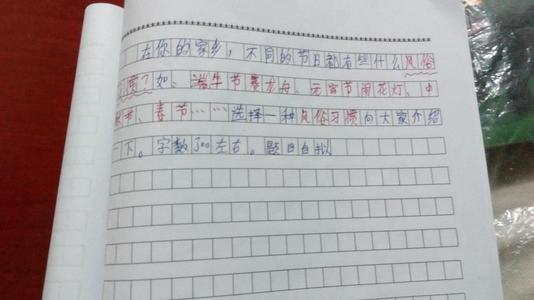 在你的家乡，不同的节日都有些什么风俗
习惯？如：端午节赛龙舟、元宵节闹花灯、中
秋节、春节……选择一种风俗习惯向大家介绍
一下。字数700左右。题目自拟